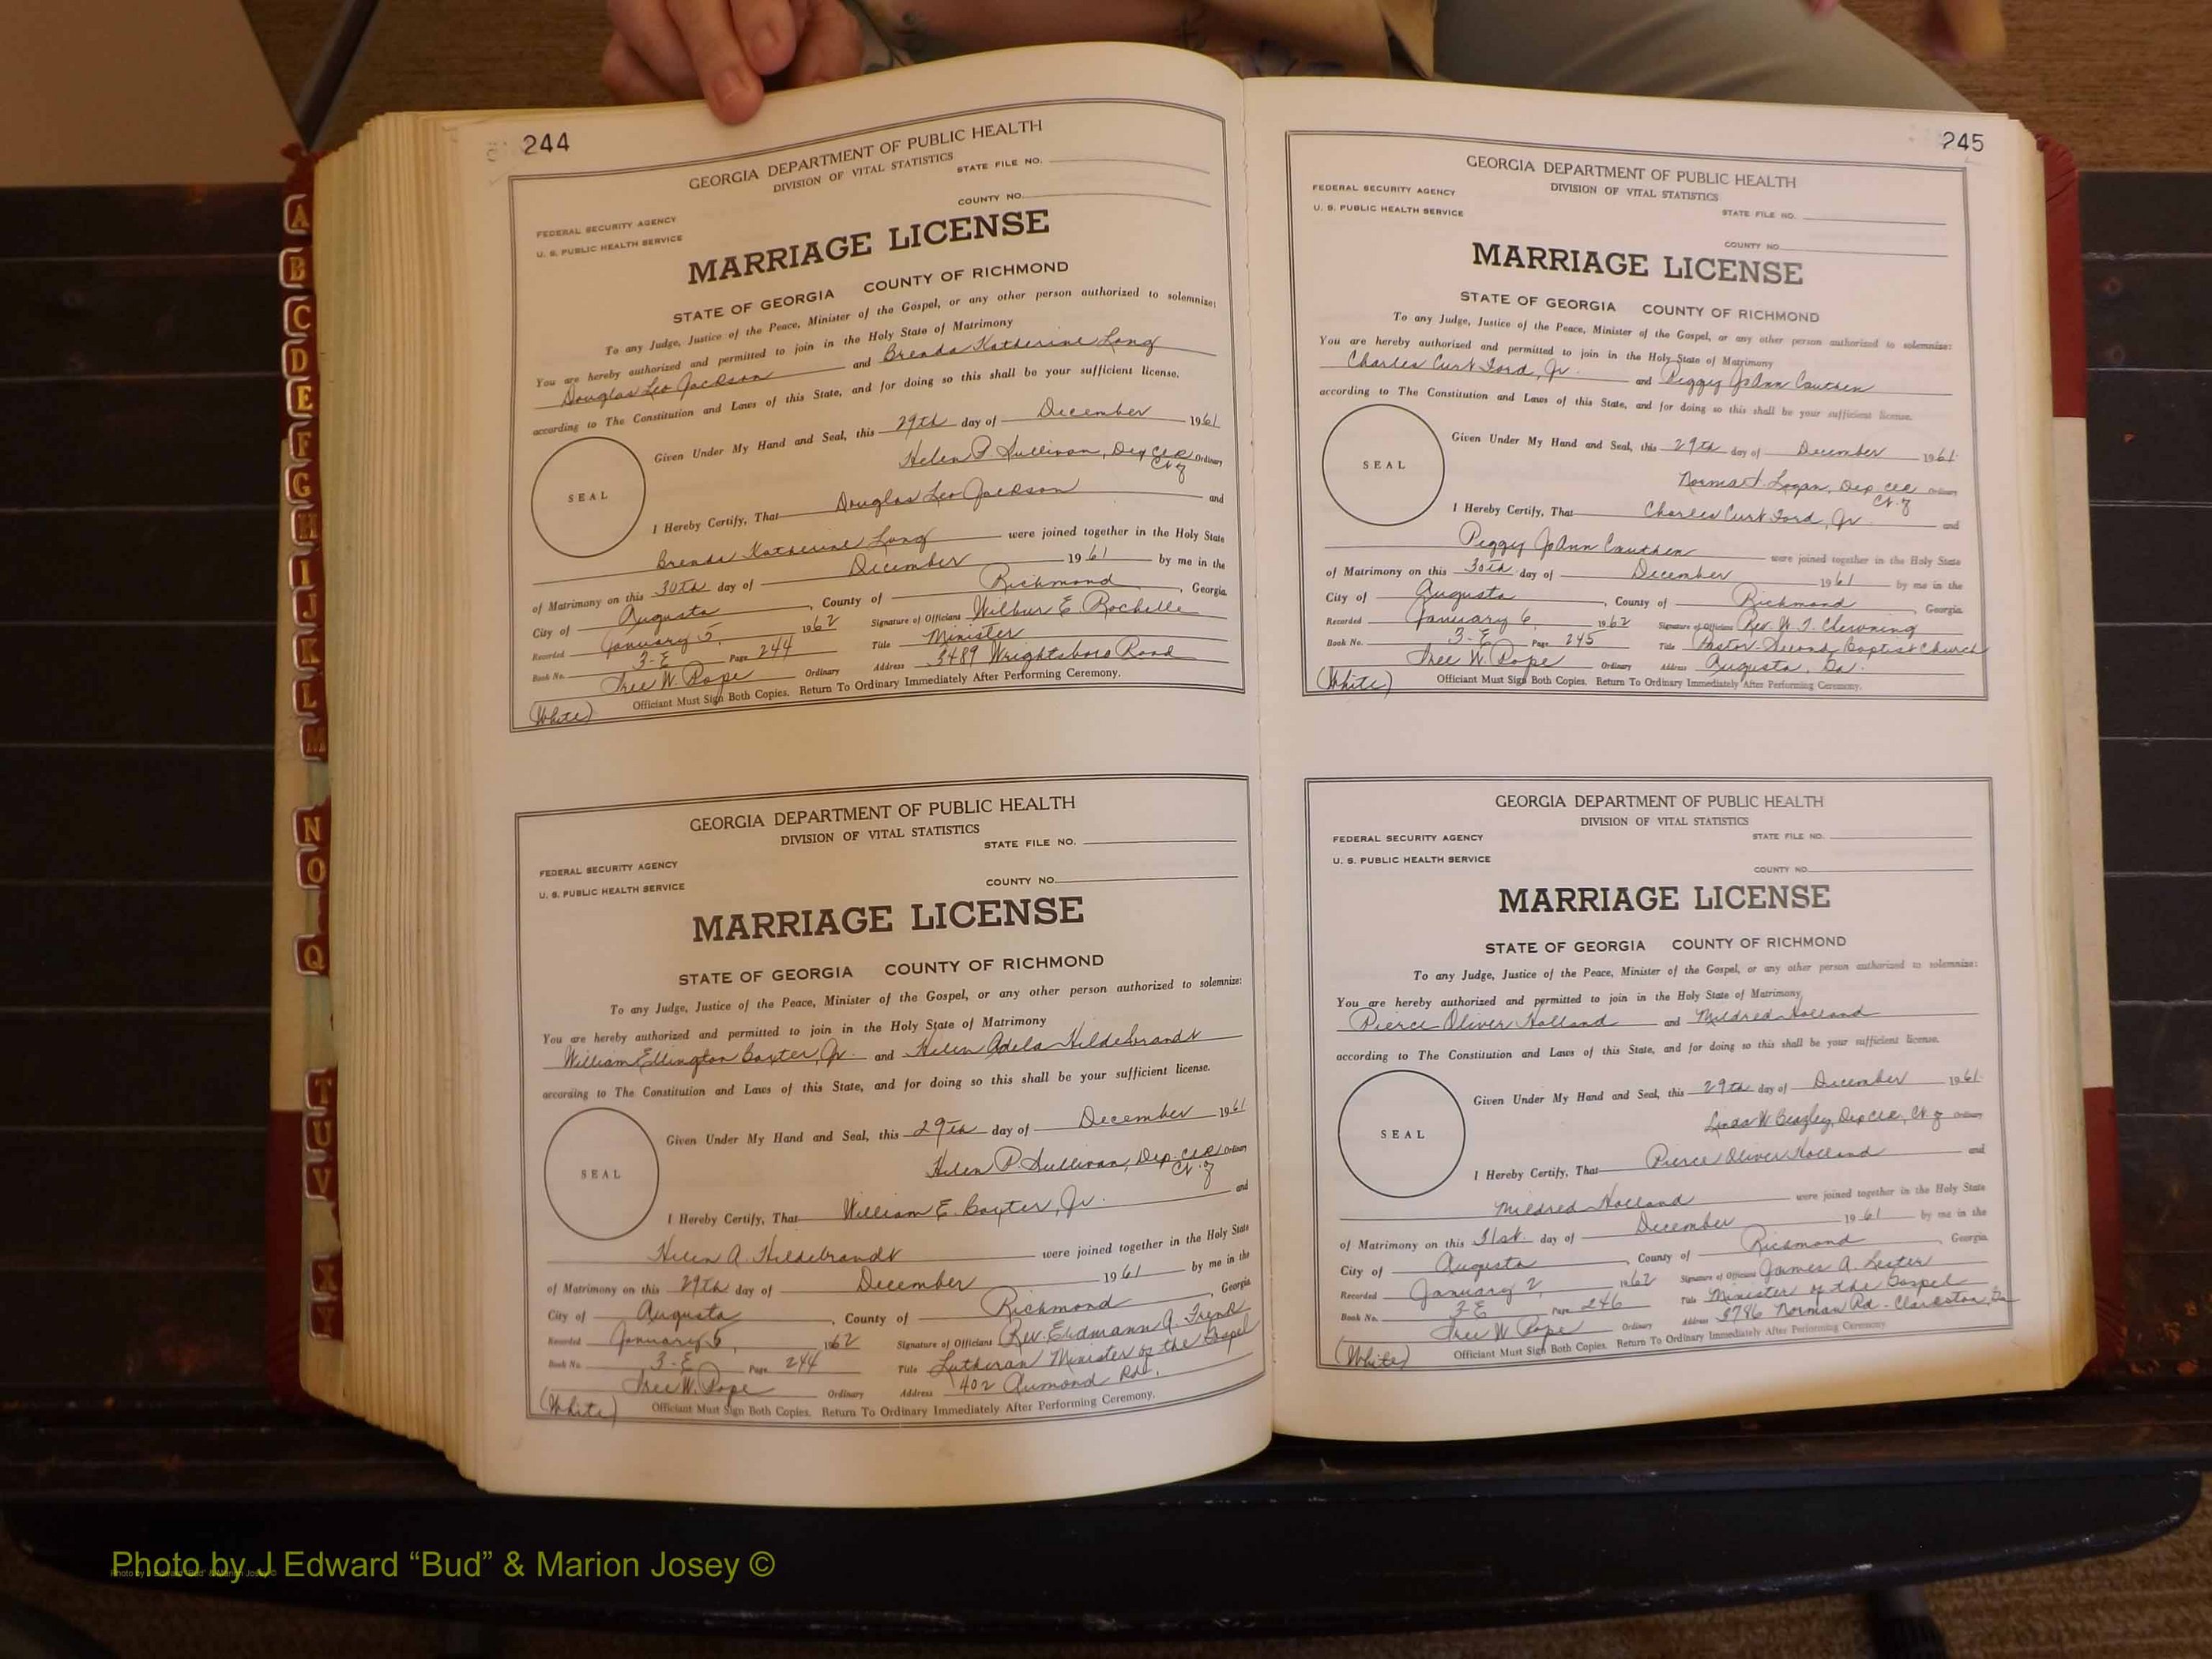 244
GEORGIA DEPARTMENT OF PUBLIC HEALTH
DIVISION OF VITAL STATISTICS
STATE FILE NO.
COUNTY NO.
FEDERAL SECURITY AGENCY
U. S. PUBLIC HEALTH SERVICE
MARRIAGE LICENSE
STATE OF GEORGIA COUNTY OF RICHMOND
To any Judge, Justice of the Peace, Minister of the Gospel, or any other person authorized to solemnize:
You are hereby authorized and permitted to join in the Holy State of Matrimony
Douglas Leo Jackson and Brenda Katherine Long
according to The Constitution and Laws of this State, and for doing so this shall be your sufficient license.
Given Under My Hand and Seal, this 29th day of December 1961
Helen P. Sullivan, Dep Clk Ordinary
SEAL
I Hereby Certify, That Douglas Leo Jackson and
Brenda Katherine Long were joined together in the Holy State
of Matrimony on this 30th day of December 1961 by me in the
City of Augusta, County of Richmond, Georgia
Recorded January 5, 1962 Signature of Officiant Wilbur E. Rochelle
Book No. 3-E Page 244 Title Minister
Tree W. Pope Ordinary Address 3489 Wrightsboro Road
(White) Officiant Must Sign Both Copies. Return To Ordinary Immediately After Performing Ceremony.
GEORGIA DEPARTMENT OF PUBLIC HEALTH
DIVISION OF VITAL STATISTICS
STATE FILE NO.
FEDERAL SECURITY AGENCY
COUNTY NO.
U. S. PUBLIC HEALTH SERVICE
MARRIAGE LICENSE
STATE OF GEORGIA COUNTY OF RICHMOND
To any Judge, Justice of the Peace, Minister of the Gospel, or any other person authorized to solemnize:
You are hereby authorized and permitted to join in the Holy State of Matrimony
William Ellington Baxter, Jr. and Helen Adela Hildebrandt
according to The Constitution and Laws of this State, and for doing so this shall be your sufficient license.
Given Under My Hand and Seal, this 29th day of December 1961
Helen P. Sullivan, Dep. Clk Ordinary
SEAL
I Hereby Certify, That William E. Baxter, Jr. and
Helen A. Hildebrandt were joined together in the Holy State
of Matrimony on this 29th day of December 1961 by me in the
City of Augusta, County of Richmond, Georgia
Recorded January 5 1962 Signature of Officiant Rev. Erdmann A.
Book No. 3-E Page 244 Title Lutheran Minister of the Gospel
Tree W. Pope Ordinary Address 402 Aumond Rd.
(White) Officiant Must Sign Both Copies. Return To Ordinary Immediately After Performing Ceremony.
245
GEORGIA DEPARTMENT OF PUBLIC HEALTH
DIVISION OF VITAL STATISTICS
FEDERAL SECURITY AGENCY
U. S. PUBLIC HEALTH SERVICE
STATE FILE NO.
COUNTY NO.
MARRIAGE LICENSE
STATE OF GEORGIA COUNTY OF RICHMOND
To any Judge, Justice of the Peace, Minister of the Gospel, or any other person authorized to solemnize:
You are hereby authorized and permitted to join in the Holy State of Matrimony
Charles Curt Ford, Jr. and Peggy JoAnn Cauthen
according to The Constitution and Laws of this State, and for doing so this shall be your sufficient license.
Given Under My Hand and Seal, this 29th day of December 1961
Norma H. Logan, Dep Clk Ordinary
SEAL
I Hereby Certify, That Charles Curt Ford, Jr. and
Peggy JoAnn Cauthen were joined together in the Holy State
of Matrimony on this 30th day of December 1961 by me in the
City of Augusta, County of Richmond, Georgia
Recorded January 6, 1962 Signature of Officiant Rev. W. T. Chewning
Book No. 3-E Page 245 Title Pastor-Second Baptist Church
Tree W. Pope Ordinary Address Augusta, Ga.
(White) Officiant Must Sign Both Copies. Return To Ordinary Immediately After Performing Ceremony.
GEORGIA DEPARTMENT OF PUBLIC HEALTH
DIVISION OF VITAL STATISTICS
FEDERAL SECURITY AGENCY STATE FILE NO.
U. S. PUBLIC HEALTH SERVICE
COUNTY NO.
MARRIAGE LICENSE
STATE OF GEORGIA COUNTY OF RICHMOND
To any Judge, Justice of the Peace, Minister of the Gospel, or any other person authorized to solemnize:
You are hereby authorized and permitted to join in the Holy State of Matrimony
Pierce Oliver Holland and Mildred Holland
according to The Constitution and Laws of this State, and for doing so this shall be your sufficient license.
Given Under My Hand and Seal, this 29th day of December 1961
Linda W Beazley, Dep Clk, Ordinary
SEAL
I Hereby Certify, That Pierce Oliver Holland and
Mildred Holland were joined together in the Holy State
of Matrimony on this 31st day of December 1961 by me in the
City of Augusta, County of Richmond, Georgia
Recorded January 2, 1962 Signature of Officiant James A. Lester
Book No. 3-E Page 246 Title Minister of the Gospel
Tree W. Pope Ordinary Address 3786 Norman Rd - Clarkston, Ga
(White) Officiant Must Sign Both Copies. Return To Ordinary Immediately After Performing Ceremony.
A
B
C
D
E
F
G
H
I
J
K
L
M
N
O
Q
T
U
V
X
Y
Photo by J Edward “Bud” & Marion Josey ©
Photo by J Edward “Bud” & Marion Josey ©